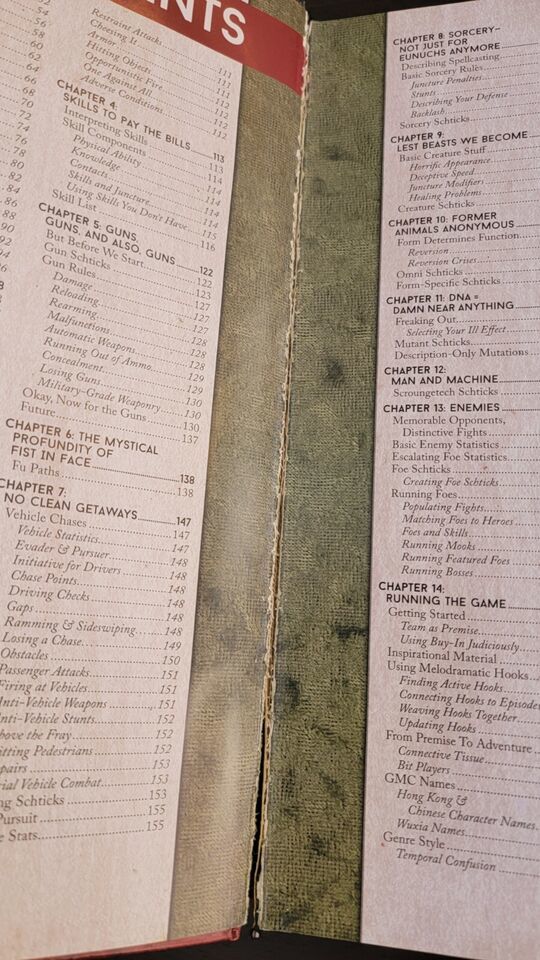 NTS
52
54
56
58
60
62
64
66
68
70
72
74
76
78
80
82
84
86
88
90
92
94
96
Restraint Attacks
Cheesing It 111
Armor 111
Hitting Objects 111
Opportunistic Fire 112
One Against All 112
Adverse Conditions 112
CHAPTER 4:
SKILLS TO PAY THE BILLS 113
Interpreting Skills 113
Skill Components 114
Physical Ability 114
Knowledge 114
Contacts 114
Skills and Juncture 114
Using Skills You Don't Have 115
Skill List 116
CHAPTER 5: GUNS,
GUNS, AND ALSO, GUNS 122
But Before We Start 122
Gun Schticks 123
Gun Rules 127
Damage 127
Reloading 127
Rearming 127
Malfunctions 128
Automatic Weapons 128
Running Out of Ammo 128
Concealment 129
Losing Guns 129
Military-Grade Weaponry 130
Okay, Now for the Guns 130
Future 137
CHAPTER 6: THE MYSTICAL
PROFUNDITY OF
FIST IN FACE 138
Fu Paths 138
CHAPTER 7:
NO CLEAN GETAWAYS 147
Vehicle Chases 147
Vehicle Statistics 147
Evader & Pursuer 148
Initiative for Drivers 148
Chase Points 148
Driving Checks 148
Gaps 148
Ramming & Sideswiping 148
Losing a Chase 149
Obstacles 150
Passenger Attacks 151
Firing at Vehicles 151
nti-Vehicle Weapons 151
nti-Vehicle Stunts 152
bove the Fray 152
itting Pedestrians 152
pairs 153
rial Vehicle Combat 153
ng Schticks 153
Pursuit 155
e Stats 155
CHAPTER 8: SORCERY—
NOT JUST FOR
EUNUCHS ANYMORE
Describing Spellcasting
Basic Sorcery Rules
Juncture Penalties
Stunts
Describing Your Defense
Backlash
Sorcery Schticks
CHAPTER 9:
LEST BEASTS WE BECOME
Basic Creature Stuff
Horrific Appearance
Deceptive Speed
Juncture Modifiers
Healing Problems
Creature Schticks
CHAPTER 10: FORMER
ANIMALS ANONYMOUS
Form Determines Function
Reversion
Reversion Crises
Omni Schticks
Form-Specific Schticks
CHAPTER 11: DNA =
DAMN NEAR ANYTHING
Freaking Out
Selecting Your Ill Effect
Mutant Schticks
Description-Only Mutations
CHAPTER 12:
MAN AND MACHINE
Scroungetech Schticks
CHAPTER 13: ENEMIES
Memorable Opponents,
Distinctive Fights
Basic Enemy Statistics
Escalating Foe Statistics
Foe Schticks
Creating Foe Schticks
Running Foes
Populating Fights
Matching Foes to Heroes
Foes and Skills
Running Mooks
Running Featured Foes
Running Bosses
CHAPTER 14:
RUNNING THE GAME
Getting Started
Team as Premise
Using Buy-In Judiciously
Inspirational Material
Using Melodramatic Hooks
Finding Active Hooks
Connecting Hooks to Episodes
Weaving Hooks Together
Updating Hooks
From Premise To Adventure
Connective Tissue
Bit Players
GMC Names
Hong Kong &
Chinese Character Names
Wuxia Names
Genre Style
Temporal Confusion